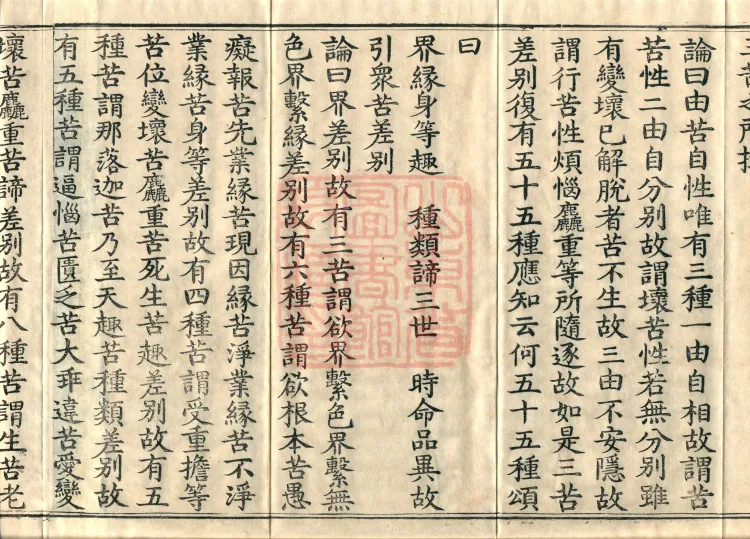 論曰由苦自性唯有三種一由自相故謂苦
苦性二由自分別故謂壞苦性若無分別雖
有變壞已解脫者苦不生故三由不安隱故
謂行苦性煩惱麤重等所隨逐故如是三苦
差別復有五十五種應知云何五十五種頌
曰
界緣身等趣　種類諦三世　時命品異故
引衆苦差別
論曰界差別故有三苦謂欲界繫色界繫無
色界繫緣差別故有六種苦謂欲根本苦愚
癡報苦先業緣苦現因緣苦淨業緣苦不淨
業緣苦身等差別故有四種苦謂受重擔等
苦位變壞苦麤重苦死生苦趣差別故有五
種苦謂那落迦苦乃至天趣苦種類差別故
有五種苦謂逼惱苦匱乏苦大乖違苦愛變
壞苦麤重苦諦差別故有八種苦謂生苦老